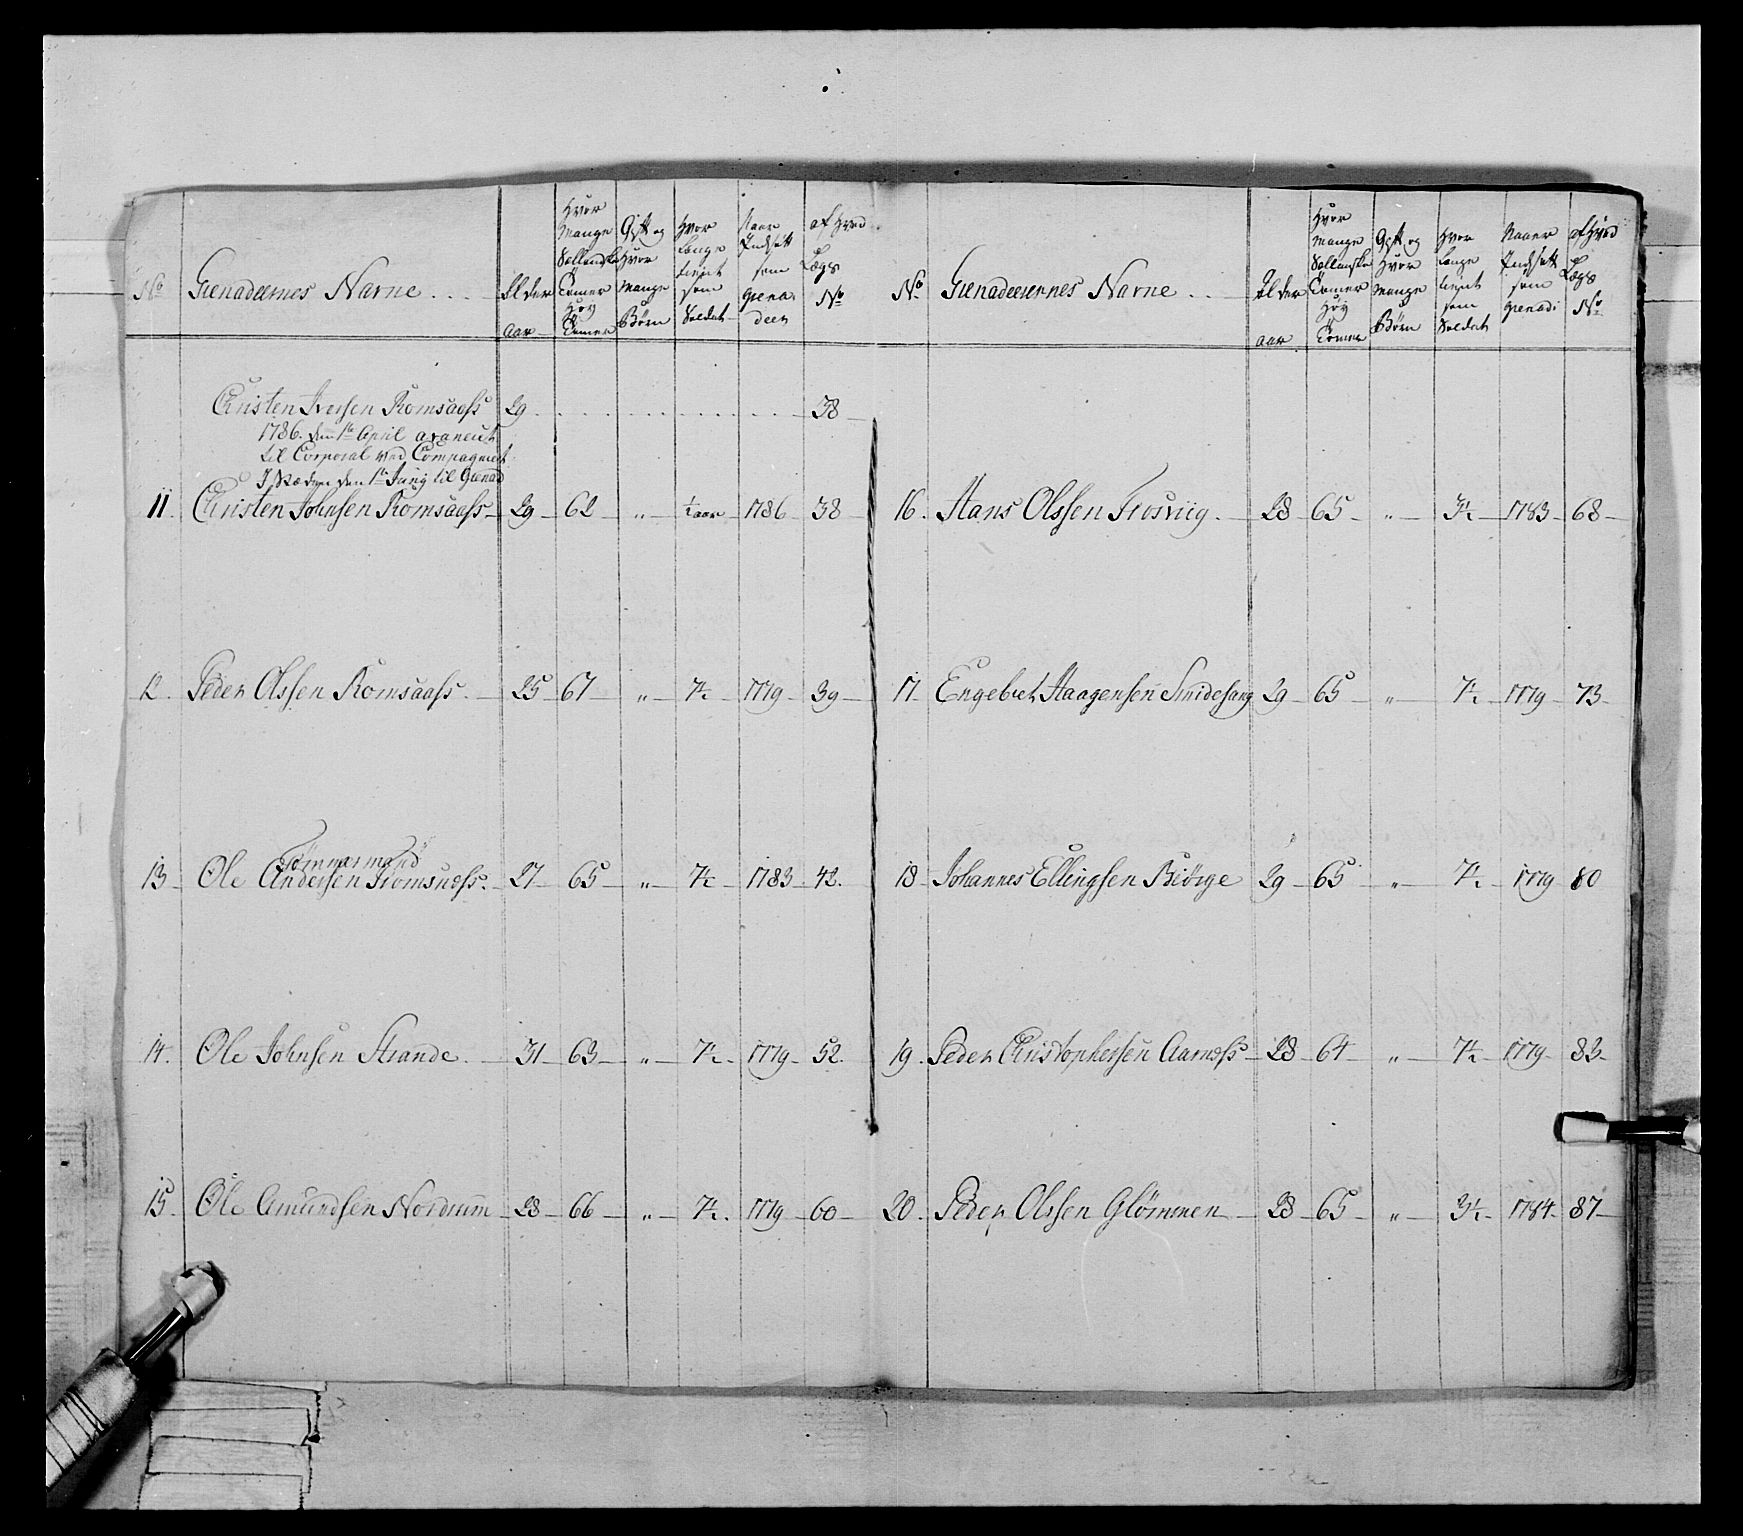 No | Grenadeernes Navne | Alder Aar | Hvor mange Sællandske Tomer Høy Tomer | Gift og Hvor mange Børn | Hvor Længe tient som Soldat | Naar Indsatt som Grenadeer | af Hvad Lægs No
Christen Iversen Romsaass 29 38
1786. den 1te April avancert
til Corporal ved Compagniet
I Stæden den 1te Junij til Grenad
11. Christen Johnsen Romsaass 29 62 „ ½ aar 1786 38
12. Peder Olssen Romsaass. 25 67 „ 7½ 1779 39
Tømmermand
13 Ole Andersen Tromsnæss. 27 65 „ 7½ 1783 42.
14. Ole Johnsen Strande. 31 63 „ 7½ 1779 52.
15. Ole Amundsen Nordrum 28 66 „ 7½ 1779 60
No | Grenadeerernes Navne | Alder Aar | Hvor mange Sællanske Tomer Høy Tomer | Gift og Hvor mange Børn | Hvor Længe tient som Soldat | Naar Indsatt som Grenadi | af Hvad Lægs No
16. Hans Olssen Trosviig. 28 65 „ 3½ 1783 68
17. Engebret Haagensen Smidesang 29 65 „ 7½ 1779 73
18 Johannes Ellingsen Biørge 29 65 „ 7½ 1779 80
19. Peder Christophersen Aarnæss 28 64 „ 7½ 1779 83
20. Peder Olssen Glømmen 28 65 „ 3½ 1784 87